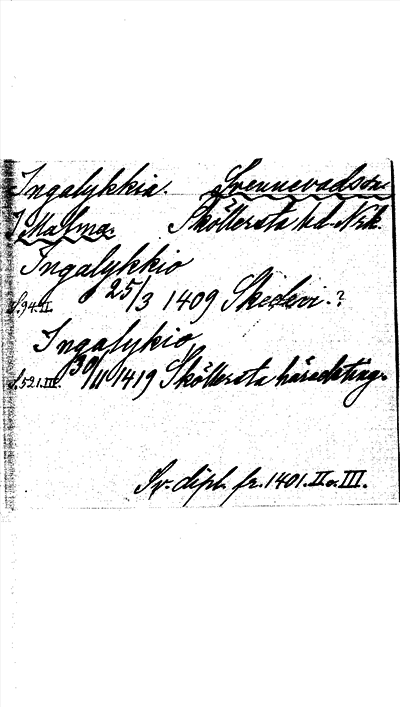 Ingalykkia. Svennevadson.
I Malma. Sköllersta hd. Nrk.
Ingalykkio
S. 94. II. 25/3 1409 Skedevi.?
Ingalykio
S. 521. III. 30/11 1419 Sköllersta häradsting.
Sv. dipl. fr. 1401. II o. III.